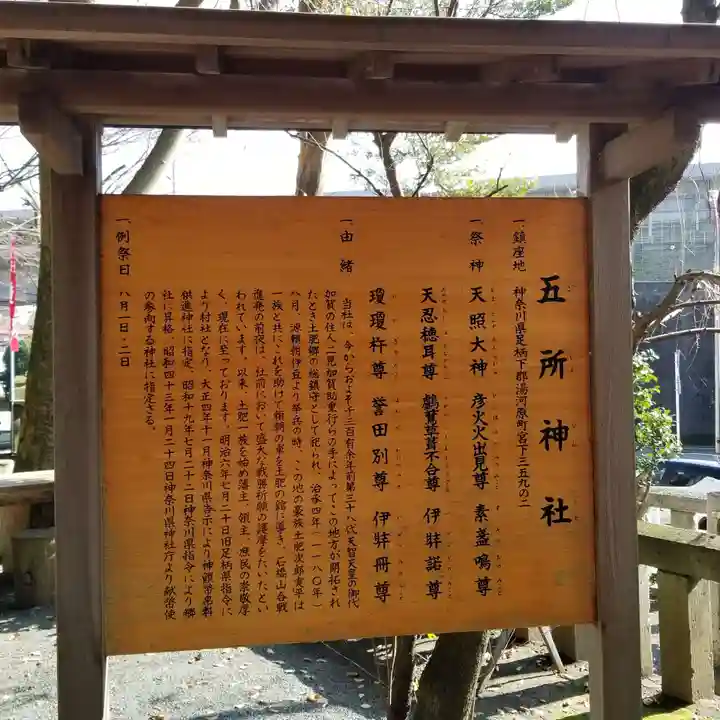 五所神社
一、鎮座地 神奈川県足柄下郡湯河原町宮下三五九の二
一、祭神 天照大神 彦火火出見尊 素盞鳴尊
天忍穂耳尊 鸕鶿葺不合尊 伊弉諾尊
瓊瓊杵尊 誉田別尊 伊弉冊尊
一、由緒
当社は、今からおよそ千三百有余年前第三十八代天智天皇の御代
加賀の住人二見加賀助重行らの手によってこの地方が開拓され
たとき土肥郷の総鎮守として祀られ、治承四年(一一八〇年)
八月、源頼朝伊豆より挙兵の時、この地の豪族土肥次郎実平は
一族と共にこれを助けて頼朝の軍を土肥の館に導き、石橋山合戦
進発の前夜は、社前において盛大な戦勝祈願の護摩をたいたとい
われています。以来、土肥一族を始め藩主、領主、庶民の崇敬厚
く、現在に至っております。明治六年七月三十日旧足柄県指令に
より村社となり、大正四年十一月神奈川県告示により神饌幣帛料
供進神社に指定、昭和十九年七月二十二日神奈川県指令により郷
社に昇格、昭和四十三年一月二十四日神奈川県神社庁より献幣使
の参向する神社に指定さる。
一、例祭日 八月一日・二日